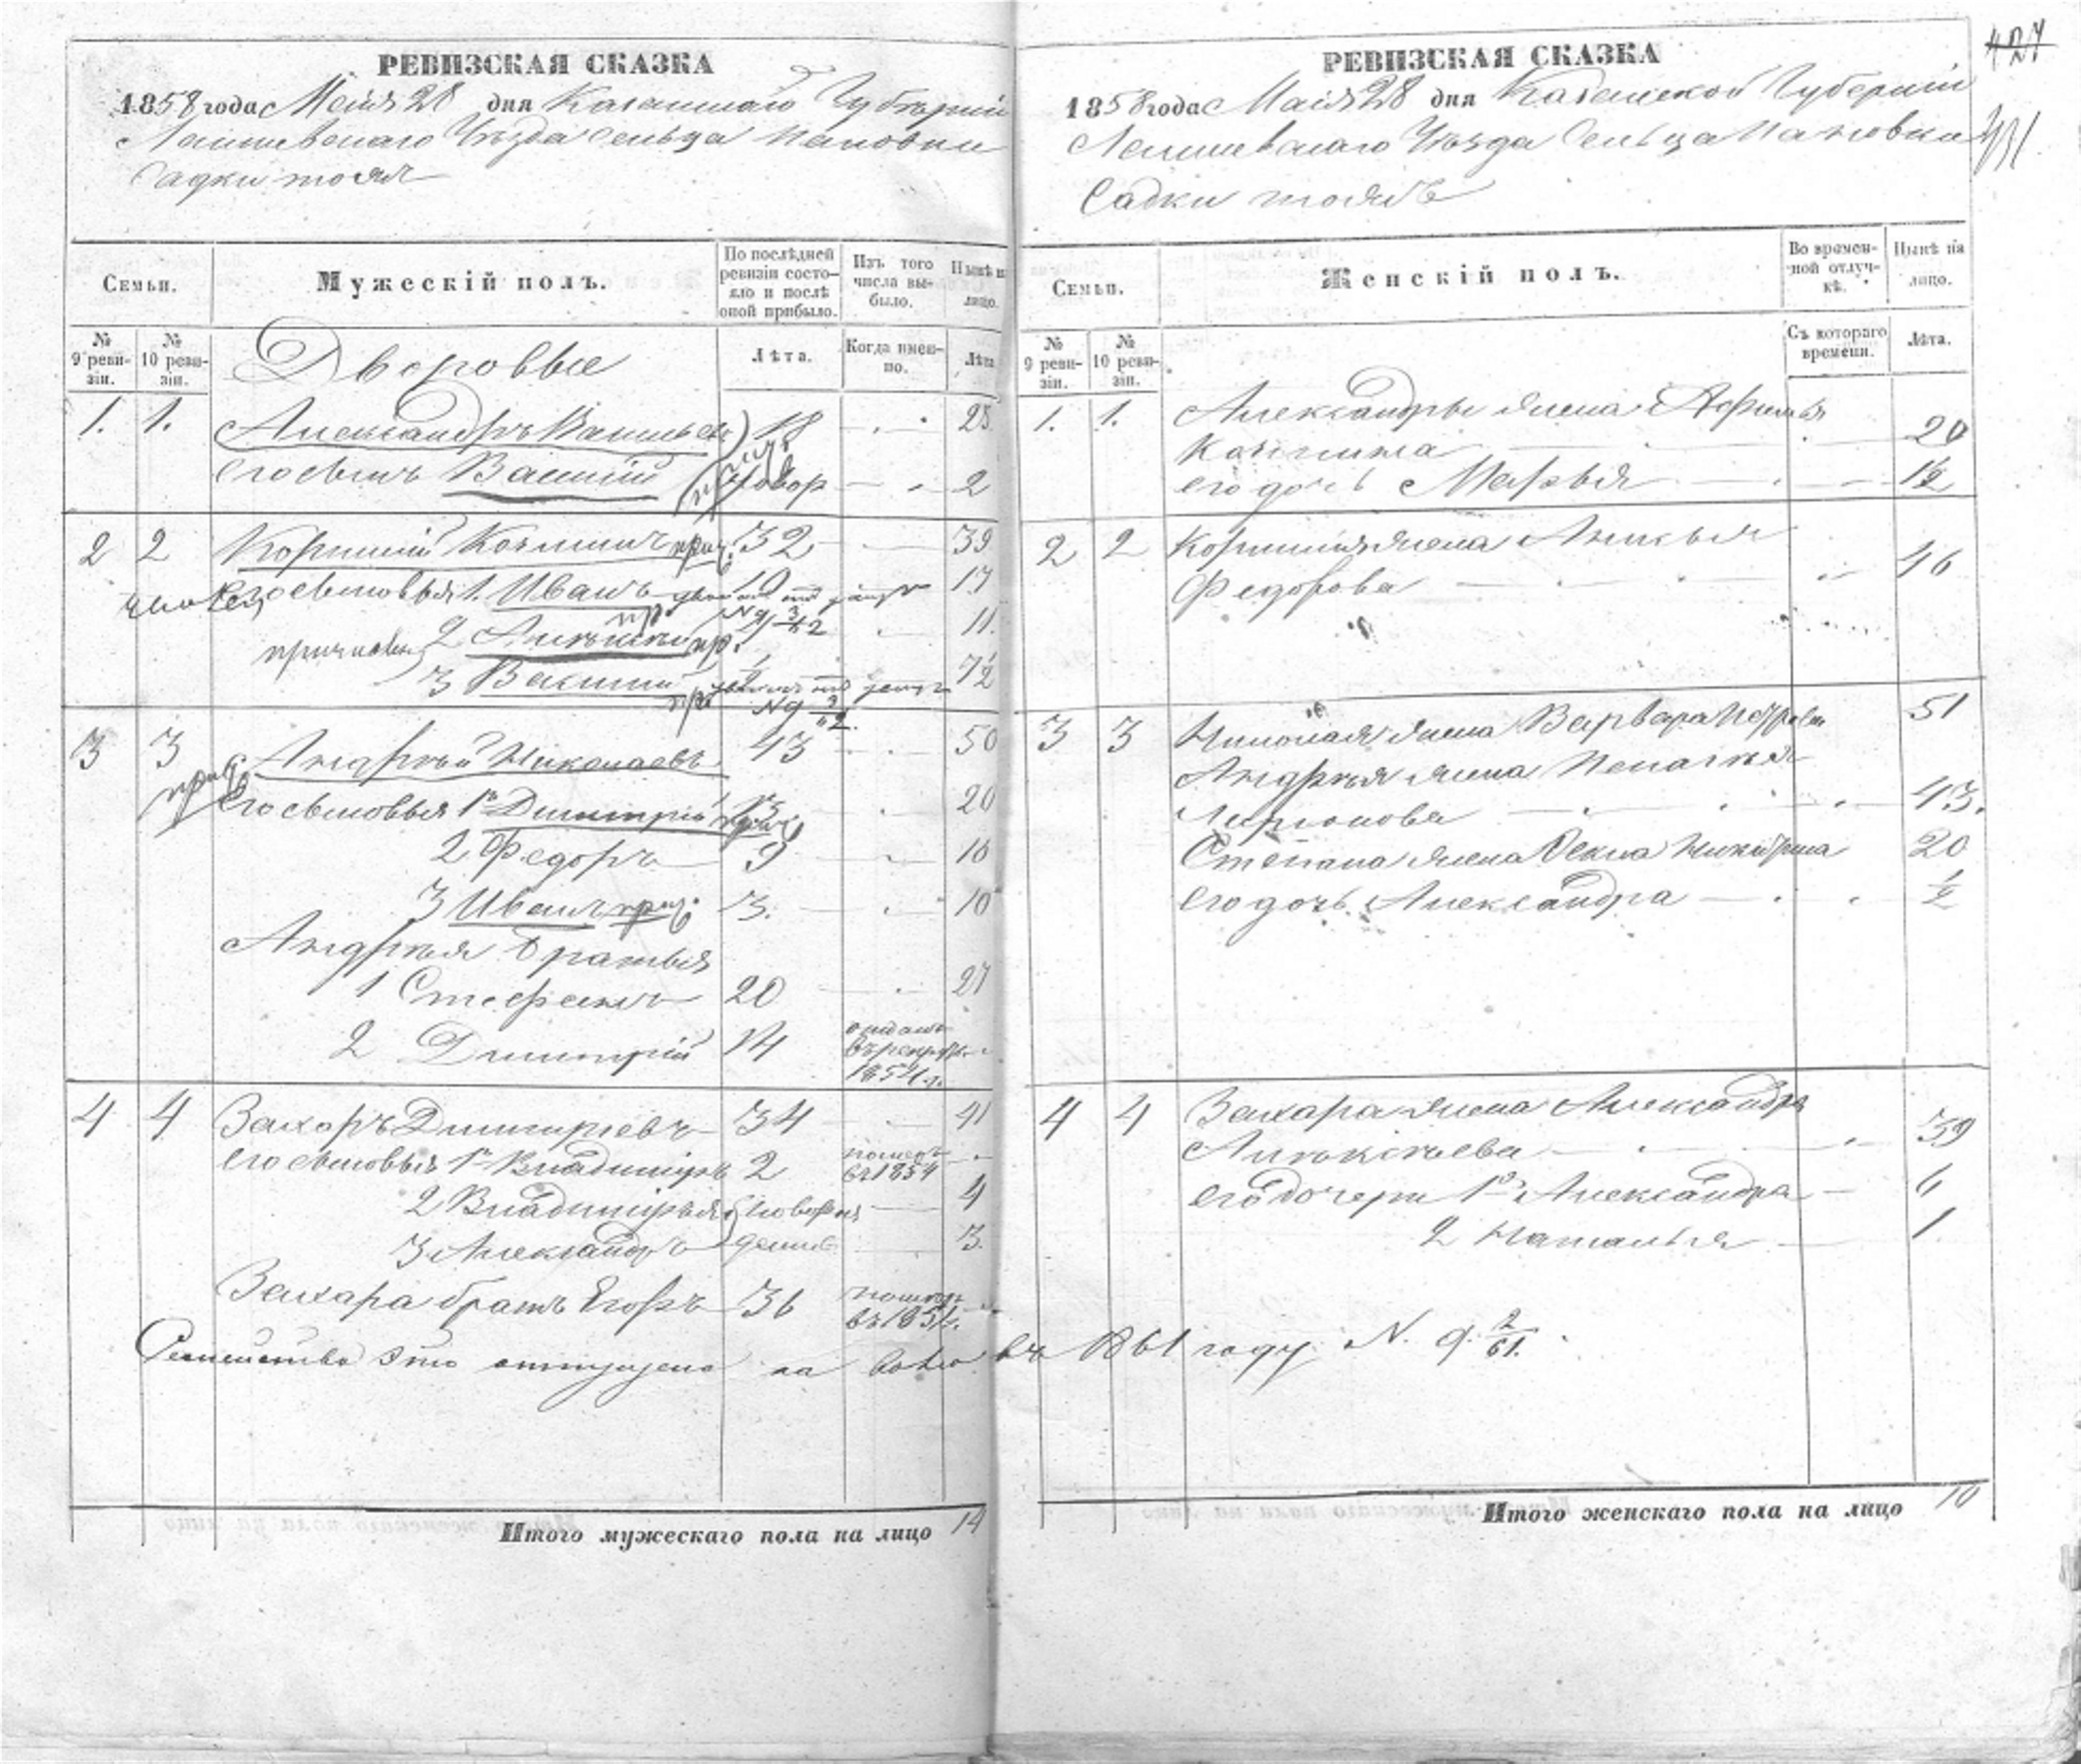 РЕВИЗСКАЯ СКАЗКА
1858 года Маія 28 дня Казанской Губерніи
Лаишевскаго Уѣзда Сельца Пановки
Садки тожъ
Семьи.
Мужескій полъ.
По послѣдней ревизіи состояло и послѣ оной прибыло.
Изъ того числа выбыло.
Нынѣ на лицо.
№ 9 ревизіи.
№ 10 ревизіи.
Дворовые
Лѣта.
Когда именно.
Лѣта
1. 1. Александръ Васильевъ 18 25
его сынъ Василій новор 2
2 2 32 39
его сыновья 1. Иванъ 10 17
№ 9 3/62
2 11
3 Василій 1/2 7 1/2
№ 9 3/62
3 3 Андрей Николаевъ 43 50
его сыновья 1й Димитрій 13 20
2 Федоръ 9 16
3 Иванъ 3. 10
Андрея братья
1 Стефанъ 20 27
2 Димитрій 14 отданъ въ рекруты 1854 г.
4 4 Захаръ Димитріевъ 34 41
его сыновья 1й Владиміръ 2 померъ въ 1854
2 Владиміръ 4
3 Александръ 3.
Захара братъ Егоръ 36 померъ въ 185
Семейство это отпущено на волю въ 1861 году N. 9. 2/61.
Итого мужескаго пола на лицо 14
РЕВИЗСКАЯ СКАЗКА
427
1858 года Маія 28 дня Казанской Губерніи
Лаишевскаго Уѣзда Сельца Пановки
Садки тожъ
Семьи.
Женскій полъ.
Во временной отлучкѣ.
Нынѣ на лицо.
№ 9 ревизіи.
№ 10 ревизіи.
Съ котораго времени.
Лѣта.
1. 1. Александра жена
20
его дочь Марья 1 1/2
2 2 жена
Федорова 46
3 3 Николая жена Варвара Петрова 51
Андрея жена Пелагея
Ларіонова 43.
Степана жена Фекла 20
его дочь Александра 1/2
4 4 Захара жена Александра
Алексѣева 39
его дочери 1я Александра 6
2 Наталья 1
Итого женскаго пола на лицо 10